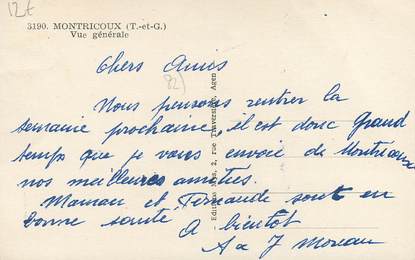 12€
3190. MONTRICOUX (T.-et-G.)
Vue générale
Chers Amis
(82)
Nous pensons rentrer la
semaine prochaine, il est donc Grand
temps que je vous envoie de Montricoux
nos meilleures amitiés.
Maman et Fernande sont en
bonne santé
A bientôt
A & J Moreau
2, rue Traversière, Agen